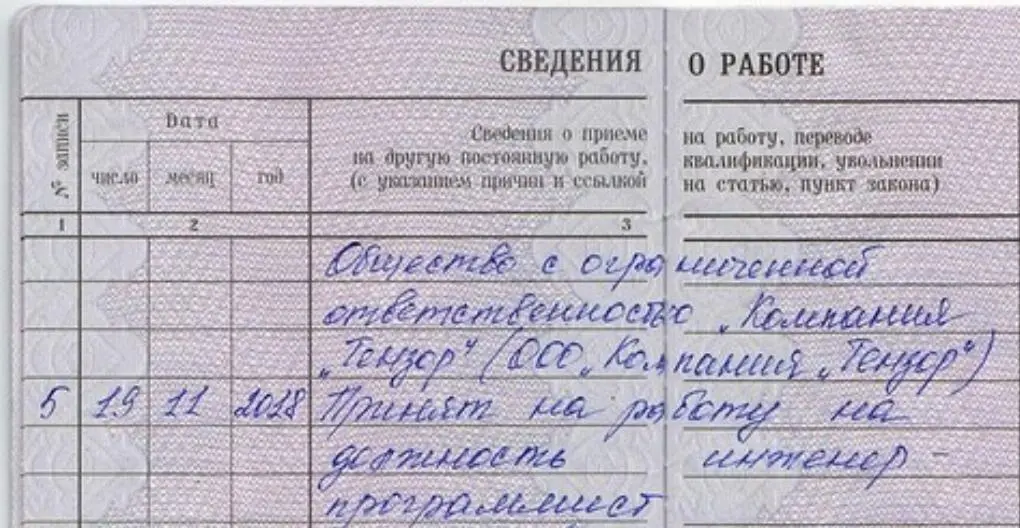 СВЕДЕНИЯ О РАБОТЕ
№ записи
Дата
число месяц год
Сведения о приеме на работу, переводе
на другую постоянную работу, квалификации, увольнении
(с указанием причин и ссылкой на статью, пункт закона)
1 2 3
Общество с ограниченной
ответственностью „Компания
„Тензор“ (ООО „Компания „Тензор“)
5 19 11 2018 Принят на работу на
должность инженер-
программист